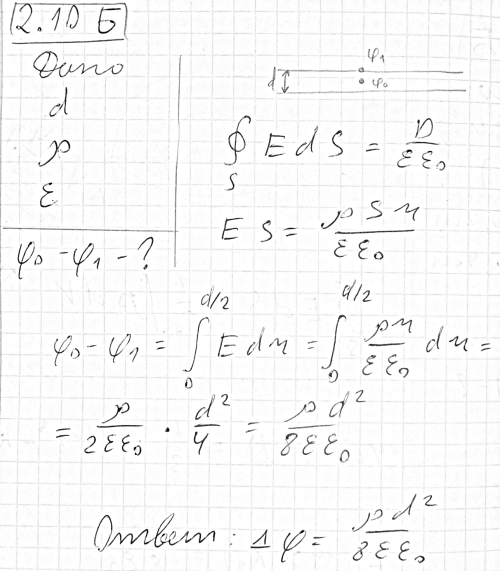 2.10 Б
Дано
d
ρ
ε
φ₀ - φ₁ - ?
d φ₁
φ₀
∮_S E d S = D / εε₀
E S = ρ S x / εε₀
φ₀ - φ₁ = ∫₀^{d/2} E dx = ∫₀^{d/2} ρx / εε₀ dx =
= ρ / 2εε₀ · d² / 4 = ρ d² / 8εε₀
Ответ: Δφ = ρ d² / 8εε₀